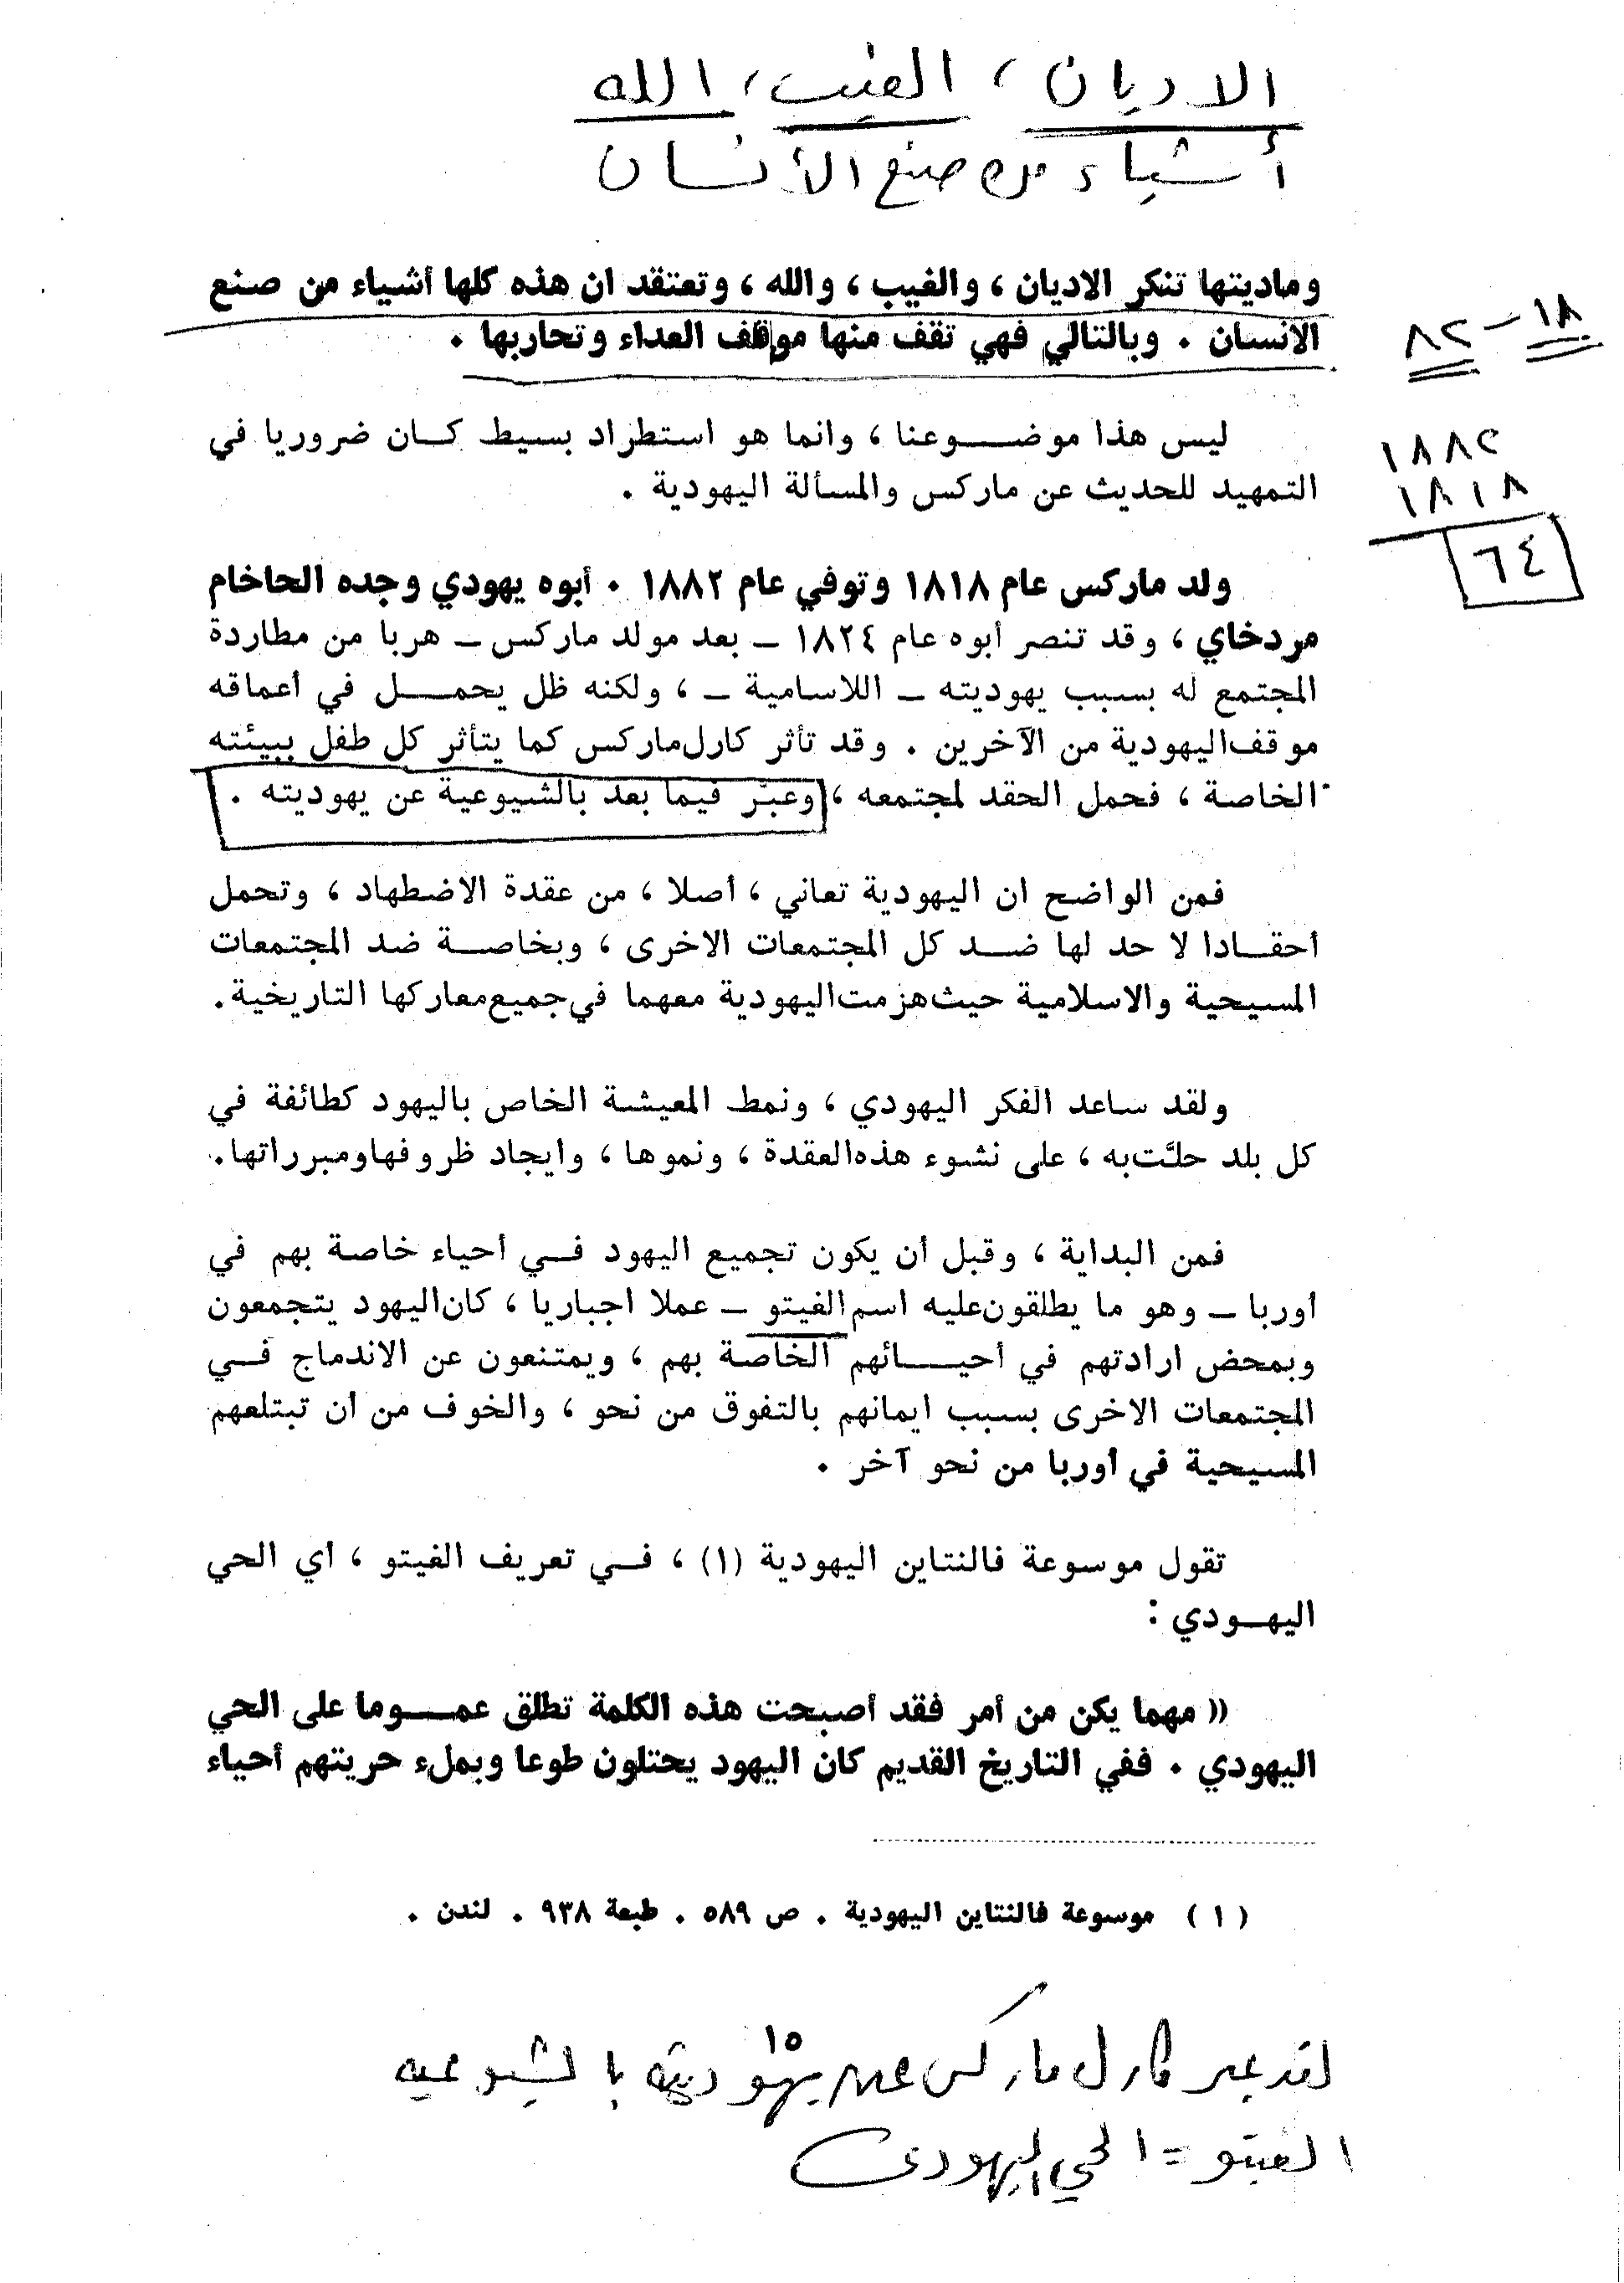 الاديان ، الغيب ، الله
أشياء من صنع الأنسان
وماديتها تنكر الاديان ، والغيب ، والله ، وتعتقد ان هذه كلها أشياء من صنع
الانسان . وبالتالي فهي تقف منها موقف العداء وتحاربها .
١٨ – ٨٢
١٨٨٢
١٨١٨
٦٤
ليس هذا موضوعنا ، وانما هو استطراد بسيط كان ضروريا في
التمهيد للحديث عن ماركس والمسألة اليهودية .
ولد ماركس عام ١٨١٨ وتوفي عام ١٨٨٢ . أبوه يهودي وجده الحاخام
مردخاي ، وقد تنصر أبوه عام ١٨٢٤ – بعد مولد ماركس – هربا من مطاردة
المجتمع له بسبب يهوديته – اللاسامية – ، ولكنه ظل يحمل في أعماقه
موقف اليهودية من الآخرين . وقد تأثر كارل ماركس كما يتأثر كل طفل ببيئته
الخاصة ، فحمل الحقد لمجتمعه ، وعبّر فيما بعد بالشيوعية عن يهوديته .
فمن الواضح ان اليهودية تعاني ، أصلا ، من عقدة الاضطهاد ، وتحمل
أحقادا لا حد لها ضد كل المجتمعات الاخرى ، وبخاصة ضد المجتمعات
المسيحية والاسلامية حيث هزمت اليهودية معهما في جميع معاركها التاريخية .
ولقد ساعد الفكر اليهودي ، ونمط المعيشة الخاص باليهود كطائفة في
كل بلد حلّت به ، على نشوء هذه العقدة ، ونموها ، وايجاد ظروفها ومبرراتها .
فمن البداية ، وقبل أن يكون تجميع اليهود في أحياء خاصة بهم في
أوربا – وهو ما يطلقون عليه اسم الغيتو – عملا اجباريا ، كان اليهود يتجمعون
وبمحض ارادتهم في أحيائهم الخاصة بهم ، ويمتنعون عن الاندماج في
المجتمعات الاخرى بسبب ايمانهم بالتفوق من نحو ، والخوف من أن تبتلعهم
المسيحية في أوربا من نحو آخر .
تقول موسوعة فالنتاين اليهودية (١) ، في تعريف الغيتو ، أي الحي
اليهودي :
(( مهما يكن من أمر فقد أصبحت هذه الكلمة تطلق عموما على الحي
اليهودي . ففي التاريخ القديم كان اليهود يحتلون طوعا وبملء حريتهم أحياء
( ١ ) موسوعة فالنتاين اليهودية . ص ٥٨٩ . طبعة ٩٣٨ . لندن .
١٥
لقد عبر كارل ماركس عن يهوديته بالشيوعيه
الغيتو = الحي اليهودي